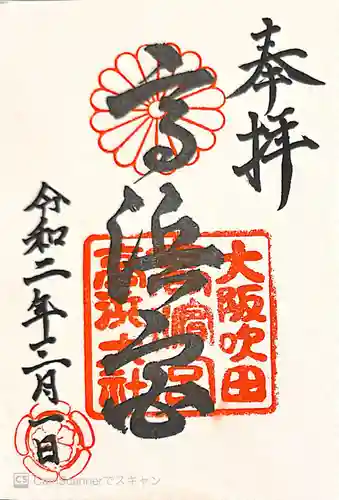 奉拝
高浜宮
大阪吹田
高浜大社
令和二年十二月一日
CS CamScannerでスキャン